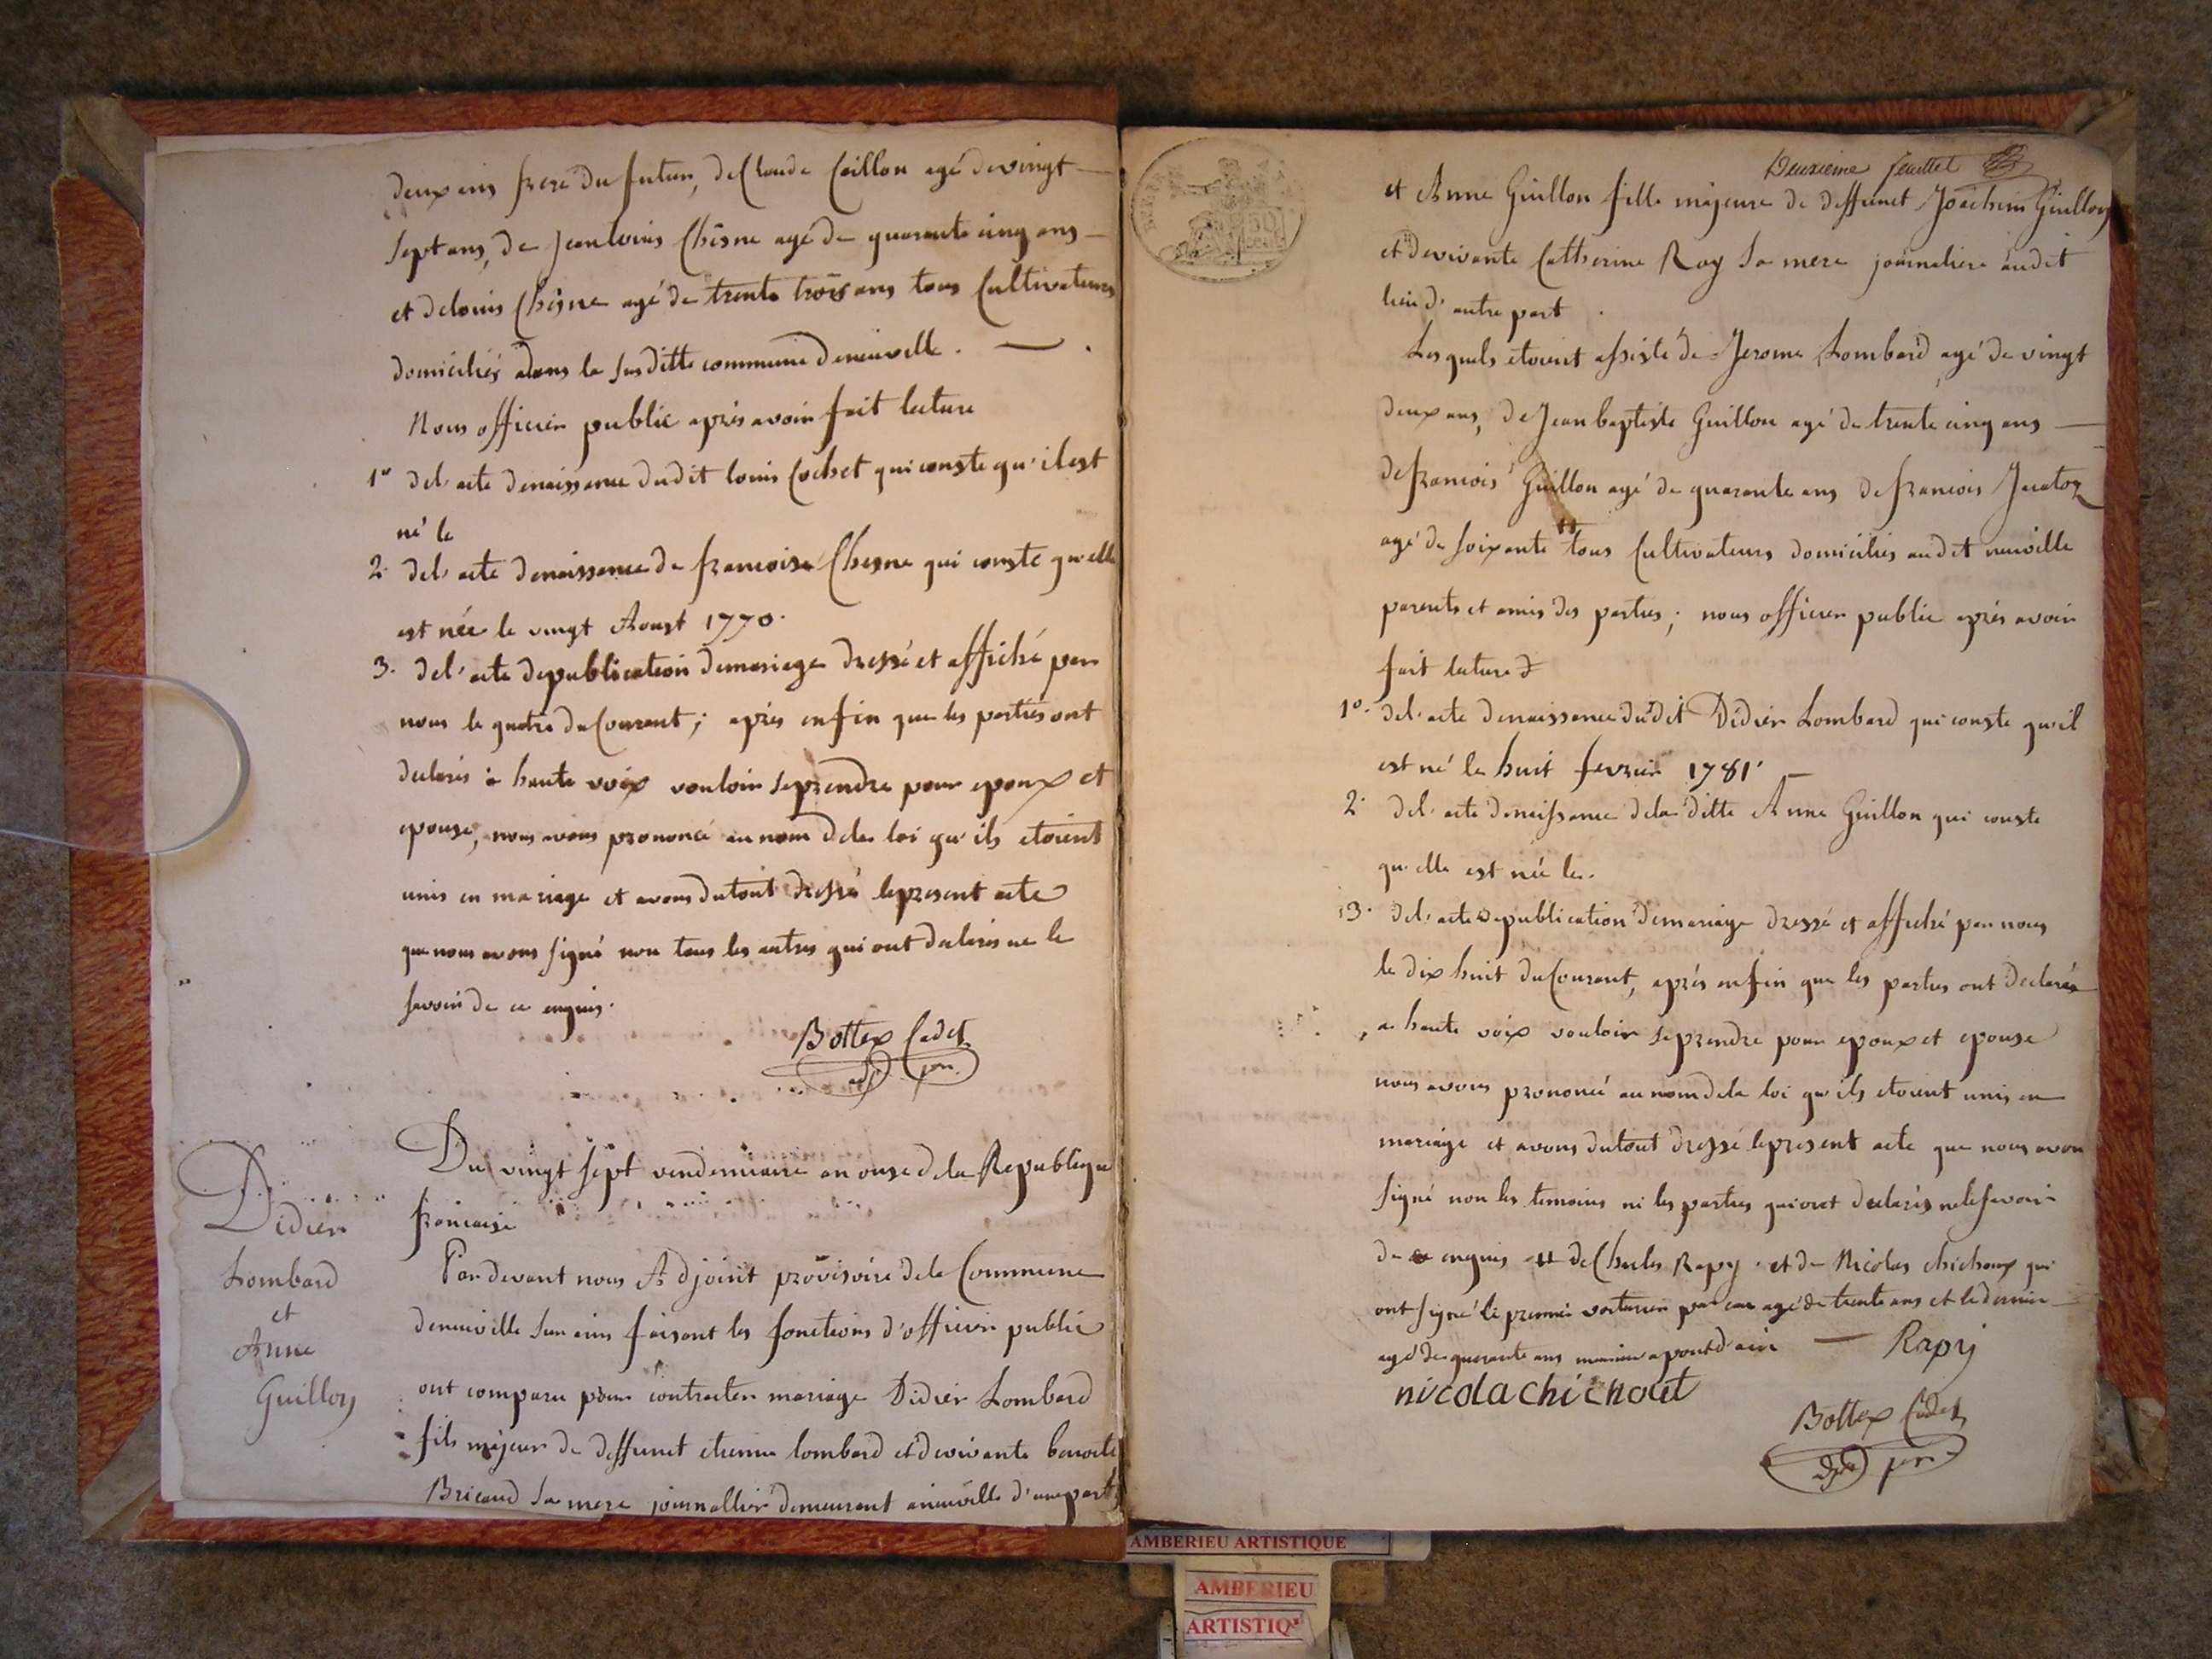 deux ans frere du futur, de Claude Caillon agé de vingt
sept ans, de Jean louis Chêsne agé de quarante cinq ans
et de louis Chêsne agé de trente trois ans tous Cultivateurs
domiciliés dans la susditte commune de neuville .
Nous officier public après avoir fait lecture
1° del'acte denaissance dudit louis Cochet qui conste qu'il est
né le
2. del'acte denaissance de francoise Chesne qui conste qu'elle
est née le vingt Aoust 1770.
3. del'acte depublication demariage dressé et affiché par
nous le quatre du Courant ; après enfin que les parties ont
declarés à haute voix vouloir seprendre pour epoux et
epouse, nous avons prononcé au nom dela loi qu'ils etoient
unis en mariage et avons dutout dressé lepresent acte
que nous avons signé non tous les autres qui ont declarés ne le
savoir de ce enquis.
Bottex Cadet
adj pro.
Du vingt sept vendemiaire an onze dela Republique
francaise
Didier
Lombard
et
Anne
Guillon
Par devant nous Adjoint provisoire dela Commune
deneuville sur ains faisant les fonctions d'officier public
ont comparu pour contracter mariage Didier Lombard
fils majeur de deffunct etienne lombard et devivante benoite
Bricaud sa mere journallier demeurant aneuville d'unepart
Deuxieme feuillet
et Anne Guillon fille majeure de deffunct Joachim Guillon
et devivante Catherine Roy sa mere journaliere audit
lieu d'autre part .
Lesquels etoient assisté de Jerome Lombard agé de vingt
deux ans, de Jean baptiste Guillon agé de trente cinq ans
de francois Guillon agé de quarante ans de francois Jacatoz
agé de soixante # tous Cultivateurs domiciliés audit neuville
parents et amis des parties ; nous officier public après avoir
fait lecture d
1°. del'acte denaissance dudit Didier Lombard qui conste qu'il
est né le huit fevrier 1781
2. del'acte denaissance dela ditte Anne Guillon qui conste
qu'elle est née le.
3. del'acte depublication demariage dressé et affiché par nous
le dix huit du Courant, après enfin que les parties ont declarés
a haute voix vouloir seprendre pour epoux et epouse
nous avons prononcé au nom dela loi qu'ils etoient unis en
mariage et avons dutout dressé lepresent acte que nous avons
signé non les temoins ni les parties qui ont declarés nelesavoir
de ce enquis # de Charles Rapy et de Nicolas chichoux qui
ont signé le premier voiturier agé de trente ans et le dernier
agé de quarante ans a pont d'ain Rapy
nicolachichout
Bottex Cadet
adj pro
AMBERIEU ARTISTIQUE
AMBERIEU
ARTISTIQ